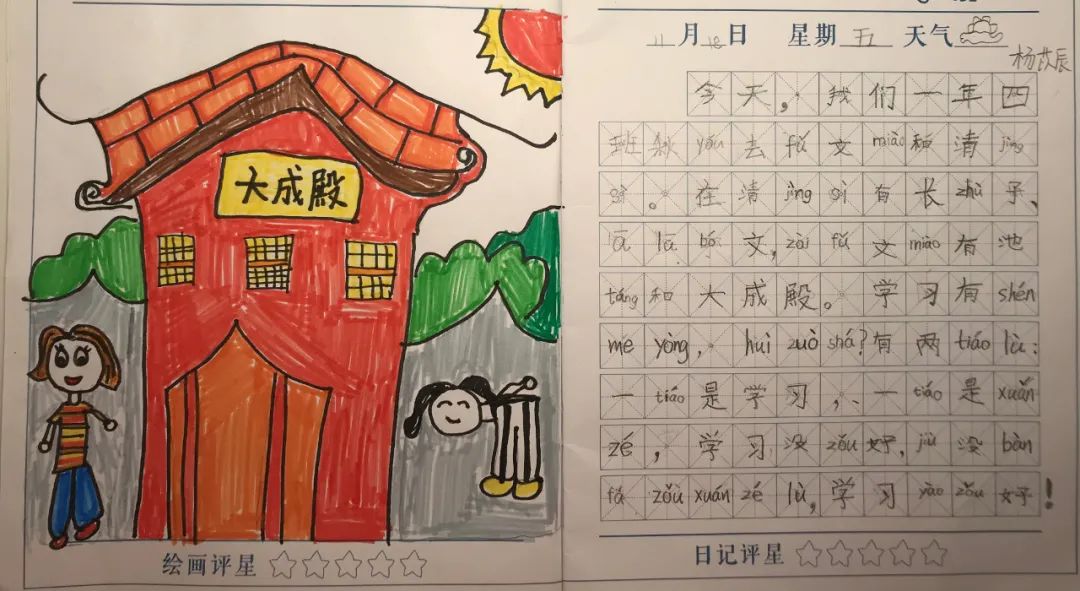 大成殿
绘画评星
11月18日 星期五 天气
今天,我们一年四
班秋yóu去fǔ文miào和清jìng
sì。在清jìng sì有长zhù子、
ā lā bó文,zài fǔ文miào有池
táng和大成殿。学习有shén
me yòng,huì zuò shá?有两tiáo lù:
一tiáo是学习,一tiáo是xuǎn
zé,学习没zǒu好,jiù没bàn
fǎ zǒu xuán zé lù,学习yào zǒu好!
日记评星